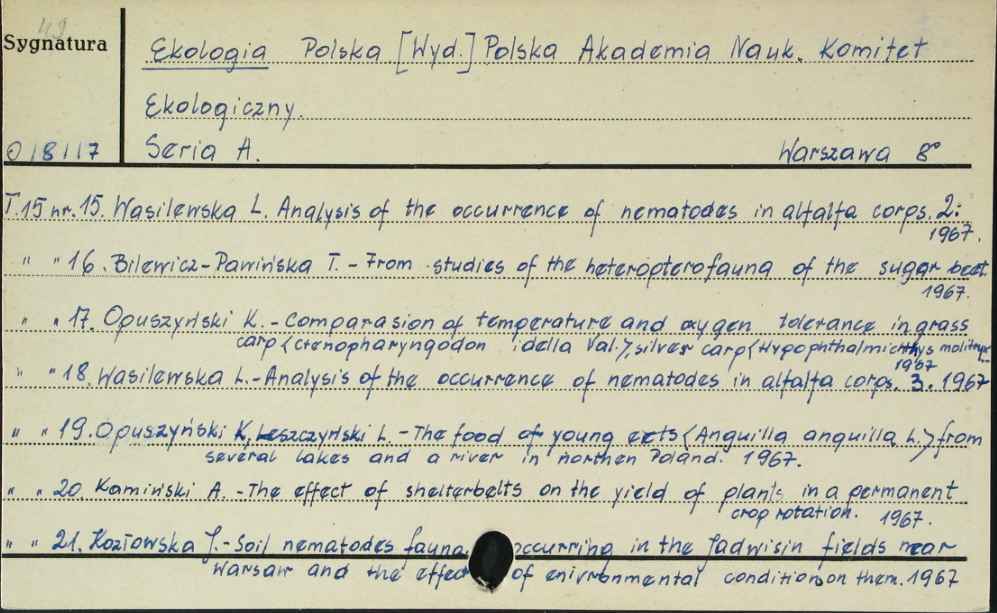 49
Sygnatura
Ekologia Polska [Wyd.] Polska Akademia Nauk. Komitet
Ekologiczny.
0/8/17 Seria A. Warszawa 8°
T.15 nr. 15. Wasilewska L. Analysis of the occurrence of nematodes in alfalfa corps. 2:
1967.
" " 16. Bilewicz-Pawińska T. - From studies of the heteropterofauna of the sugar beet.
1967.
" " 17. Opuszyński K. - Comparasion of temperature and oxygen tolerance in grass
carp (ctenopharyngodon idella Val.), silver carp (Hypophthalmichthys molitrix
1967
" " 18. Wasilewska L. - Analysis of the occurrence of nematodes in alfalfa corps. 3. 1967
" " 19. Opuszyński K, Leszczyński L. - The food of young eels (Anguilla anguilla L.) from
several lakes and a river in northen Poland. 1967.
" " 20. Kamiński A. - The effect of shelterbelts on the yield of plants in a permanent
crop rotation. 1967.
" " 21. Kozłowska J. - Soil nematodes fauna occurring in the Jadwisin fields near
Warsaw and the effect of enivronmental condition on them. 1967